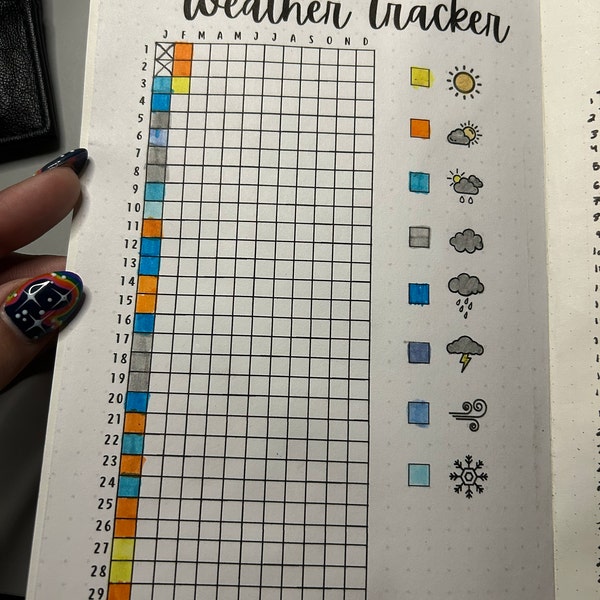 Weather Tracker
J F M A M J J A S O N D
1
2
3
4
5
6
7
8
9
10
11
12
13
14
15
16
17
18
19
20
21
22
23
24
25
26
27
28
29